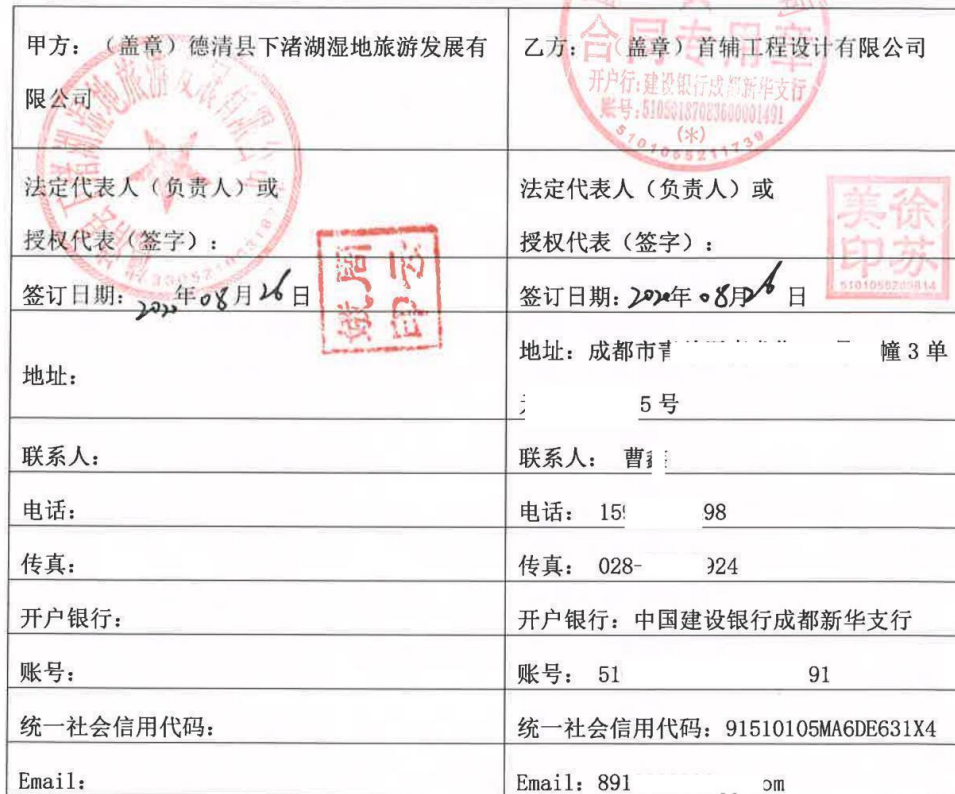 甲方：（盖章）德清县下渚湖湿地旅游发展有
限公司
乙方：（盖章）首辅工程设计有限公司
合同专用章
开户行:建设银行成都新华支行
账号:51050187083600001491
(*)
5101055211739
法定代表人（负责人）或
授权代表（签字）：
法定代表人（负责人）或
授权代表（签字）：
徐苏
美印
签订日期：2020年08月26日
签订日期：2020年08月26日
地址：
地址：成都市青 幢3单
5号
联系人：
联系人：曹
电话：
电话：15 98
传真：
传真：028- 924
开户银行：
开户银行：中国建设银行成都新华支行
账号：
账号：51 91
统一社会信用代码：
统一社会信用代码：91510105MA6DE631X4
Email：
Email：891 om